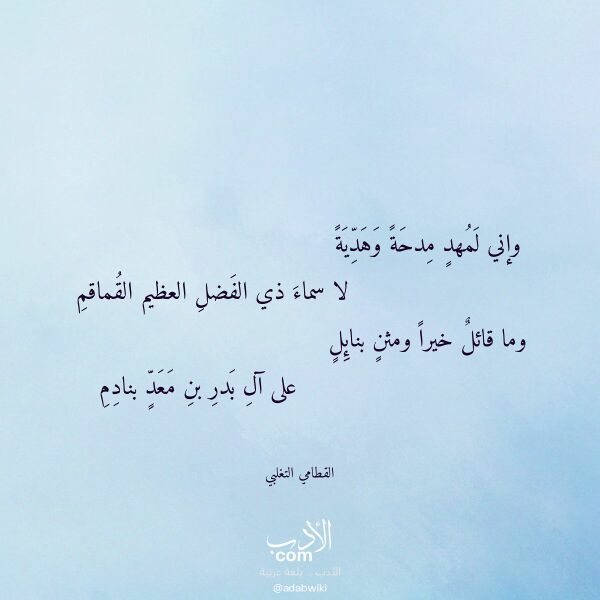 وإني لَمُهدٍ مِدحَةً وَهَدِّيَةً
لا سماءَ ذي الفَضلِ العظيم القُماقمِ
وما قائلٌ خيراً ومثنٍ بنايِلٍ
على آلِ بَدرِ بنِ مَعَدٍّ بنادِمِ
القطامي التغلبي
الأدب
com
الأدب .. بلغة عربية
@adabwiki